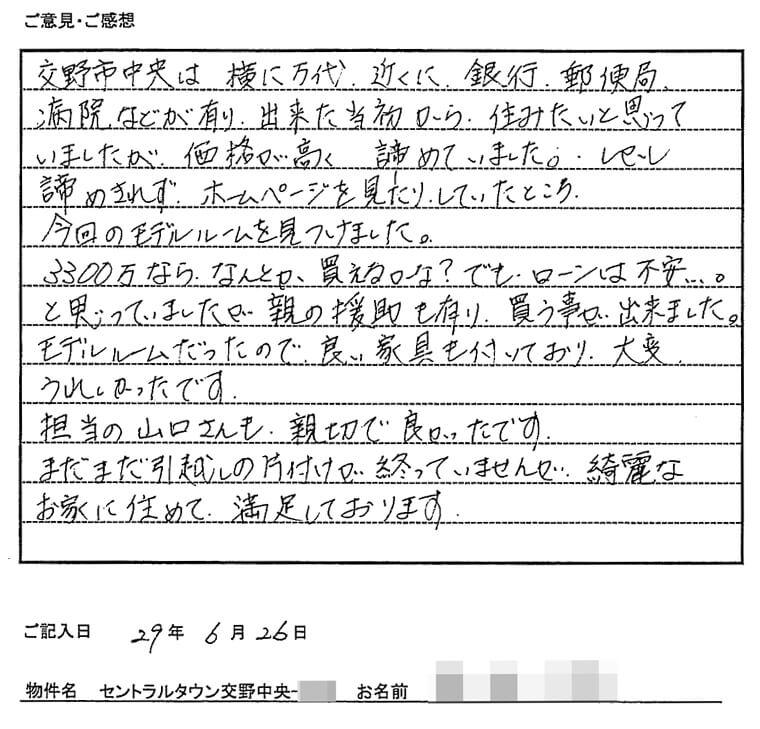 ご意見・ご感想
交野市中央は 横に万代、近くに、銀行、郵便局、
病院などが有り、出来た当初から、住みたいと思って
いましたが、価格が高く 諦めていました。しかし
諦めきれず、ホームページを見たり、していたところ、
今回のモデルルームを見つけました。
3300万なら、なんとか、買えるかな?でも、ローンは不安…。
と思っていましたが、親の援助も有り、買う事が出来ました。
モデルルームだったので、良い家具も付いており、大変、
うれしかったです。
担当の山口さんも、親切で良かったです。
まだまだ引越しの片付けが終っていませんが、綺麗な
お家に住めて、満足しております。
ご記入日 29年 6月 26日
物件名 セントラルタウン交野中央- お名前